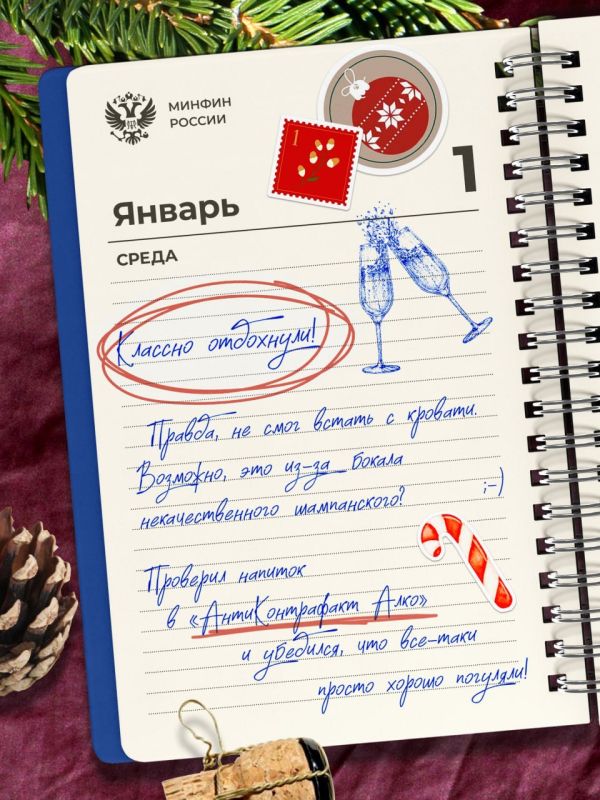 МИНФИН
РОССИИ
1
1
Январь
СРЕДА
Классно отдохнули!
Правда, не смог встать с кровати.
Возможно, это из-за бокала
некачественного шампанского? ;-)
Проверил напиток
в «АнтиКонтрафакт Алко»
и убедился, что все-таки
просто хорошо погуляли!